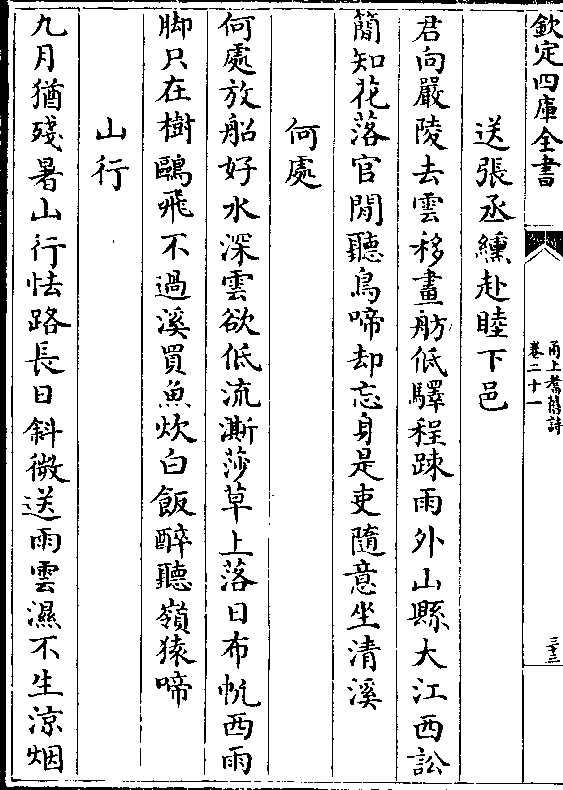 欽定四庫全書
甬上耆舊詩
卷二十一
三十三
送張丞纁赴睦下邑
君向嚴陵去雲移畫舫低驛程踈雨外山縣大江西訟
簡知花落官閒聽鳥啼却忘身是吏隨意坐清溪
何處
何處放船好水深雲欲低流澌莎草上落日布帆西雨
脚只在樹鷗飛不過溪買魚炊白飯醉聽嶺猿啼
山行
九月猶殘暑山行怯路長日斜微送雨雲濕不生涼烟